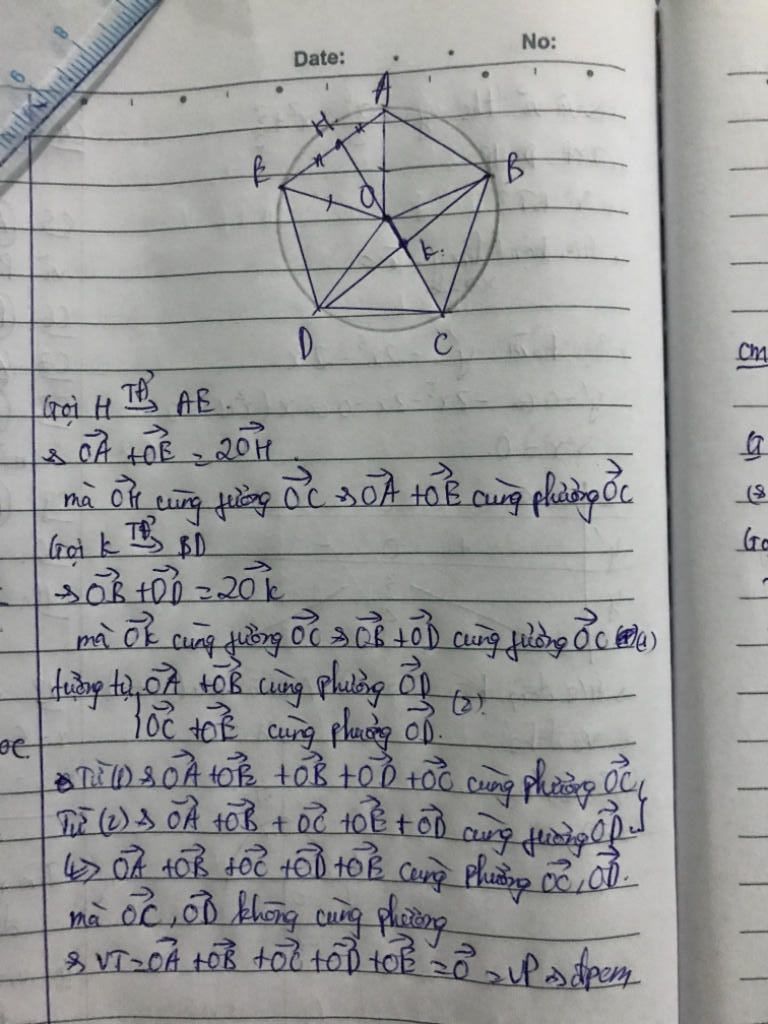 Date:
No:
A
H
E
B
O
K
D
C
Gọi H TĐ→ AE.
⇒ OA→ + OE→ = 2OH→.
mà OH→ cùng phương OC→ ⇒ OA→ + OE→ cùng phương OC→
Gọi K TĐ→ BD
⇒ OB→ + OD→ = 2OK→
mà OK→ cùng phương OC→ ⇒ OB→ + OD→ cùng phương OC→ (1)
tương tự OA→ + OB→ cùng phương OD→
OC→ + OE→ cùng phương OD→. (2).
Từ (1) ⇒ OA→ + OE→ + OB→ + OD→ + OC→ cùng phương OC→
Từ (2) ⇒ OA→ + OB→ + OC→ + OE→ + OD→ cùng phương OD→
↳> OA→ + OB→ + OC→ + OD→ + OE→ cùng phương OC→, OD→.
mà OC→, OD→ không cùng phương
⇒ VT = OA→ + OB→ + OC→ + OD→ + OE→ = O→ = VP ⇒ đpcm